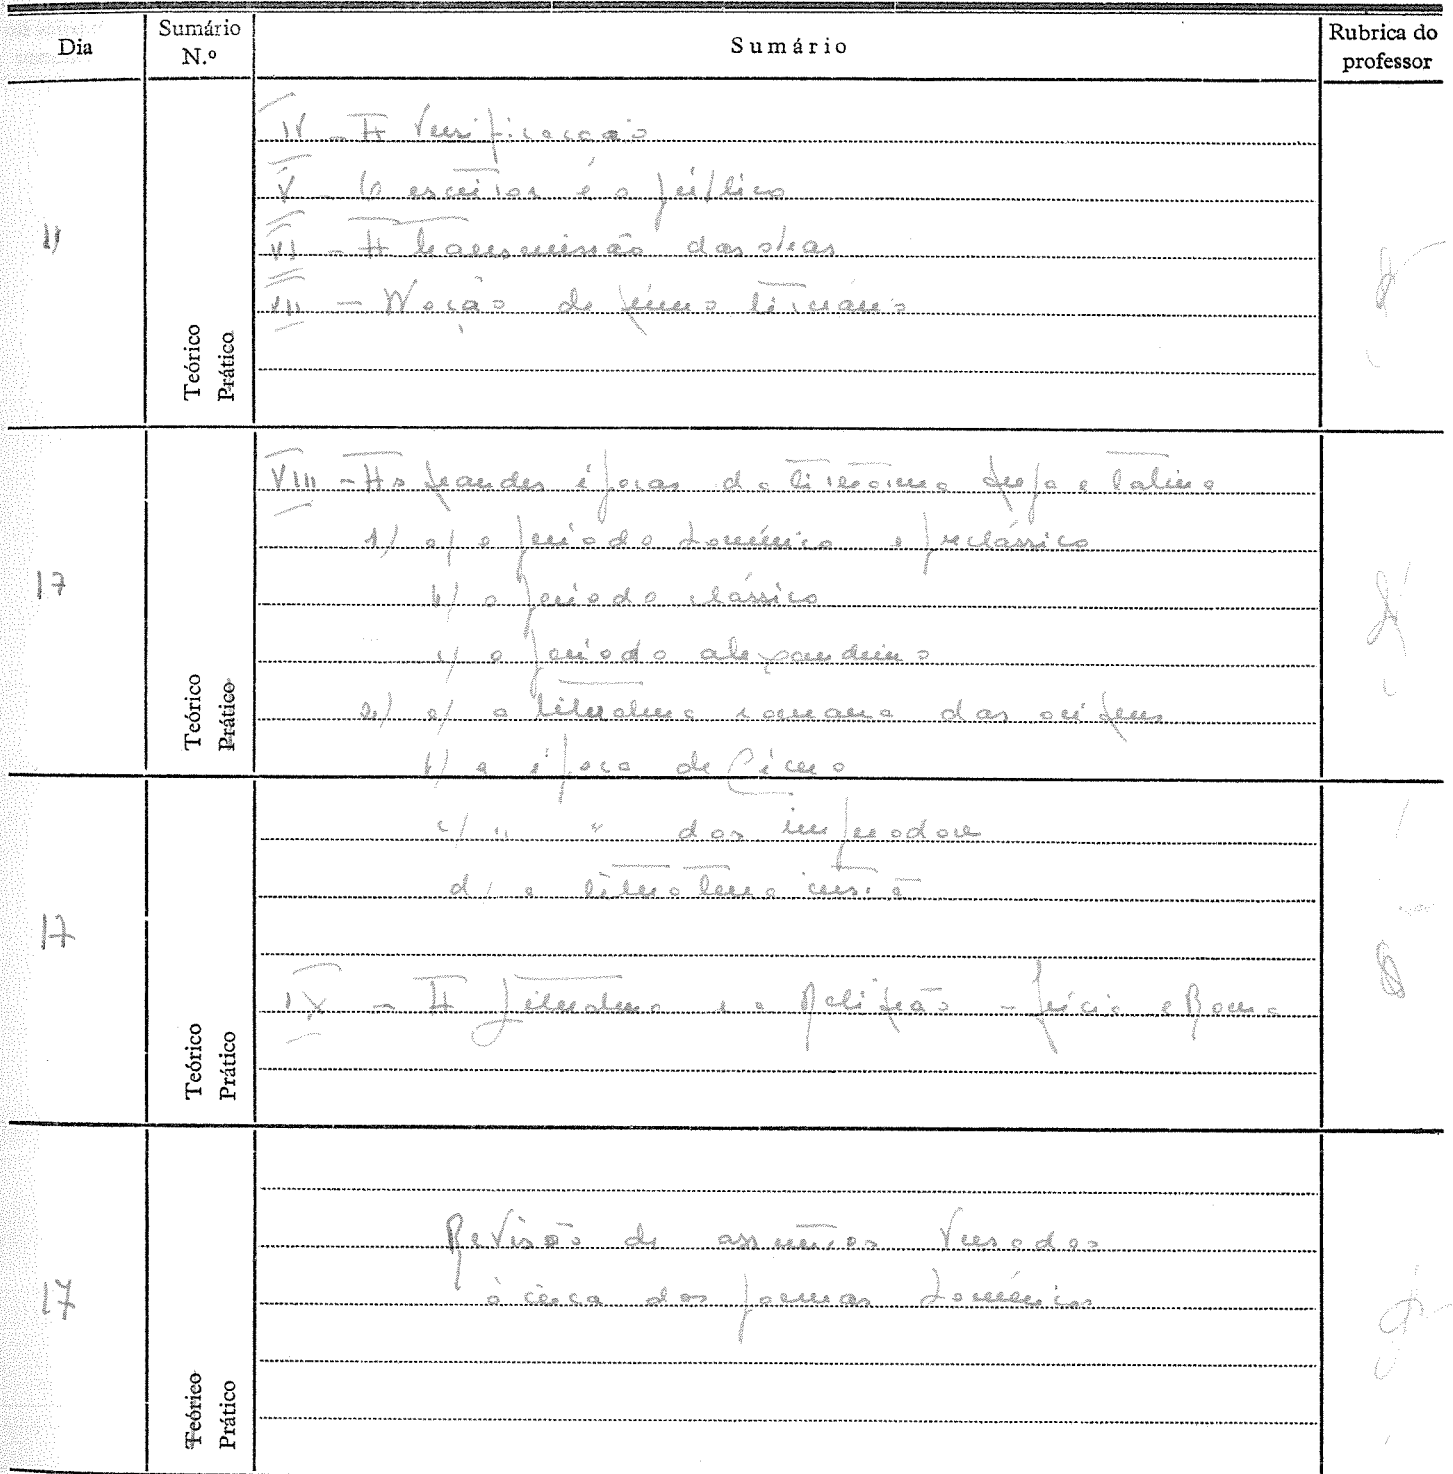 Dia Sumário N.º Sumário Rubrica do professor
IV - A Versificação
V - O escritor e o público
11
VI - A transmissão das obras
VII - Noção de género literário
Teórico
Prático
VIII - As grandes épocas da literatura grega e latina
1) a) o período homérico e preclássico
17
b) o período clássico
c) o período alexandrino
2) a) a literatura romana das origens
Teórico
Prático
b) a época de Cícero
c) " " dos imperadores
d) a literatura cristã
17
IX - A Literatura e a Religião - Grécia e Roma
Teórico
Prático
Revisão de assuntos versados
17
àcêrca dos poemas homéricos
Teórico
Prático